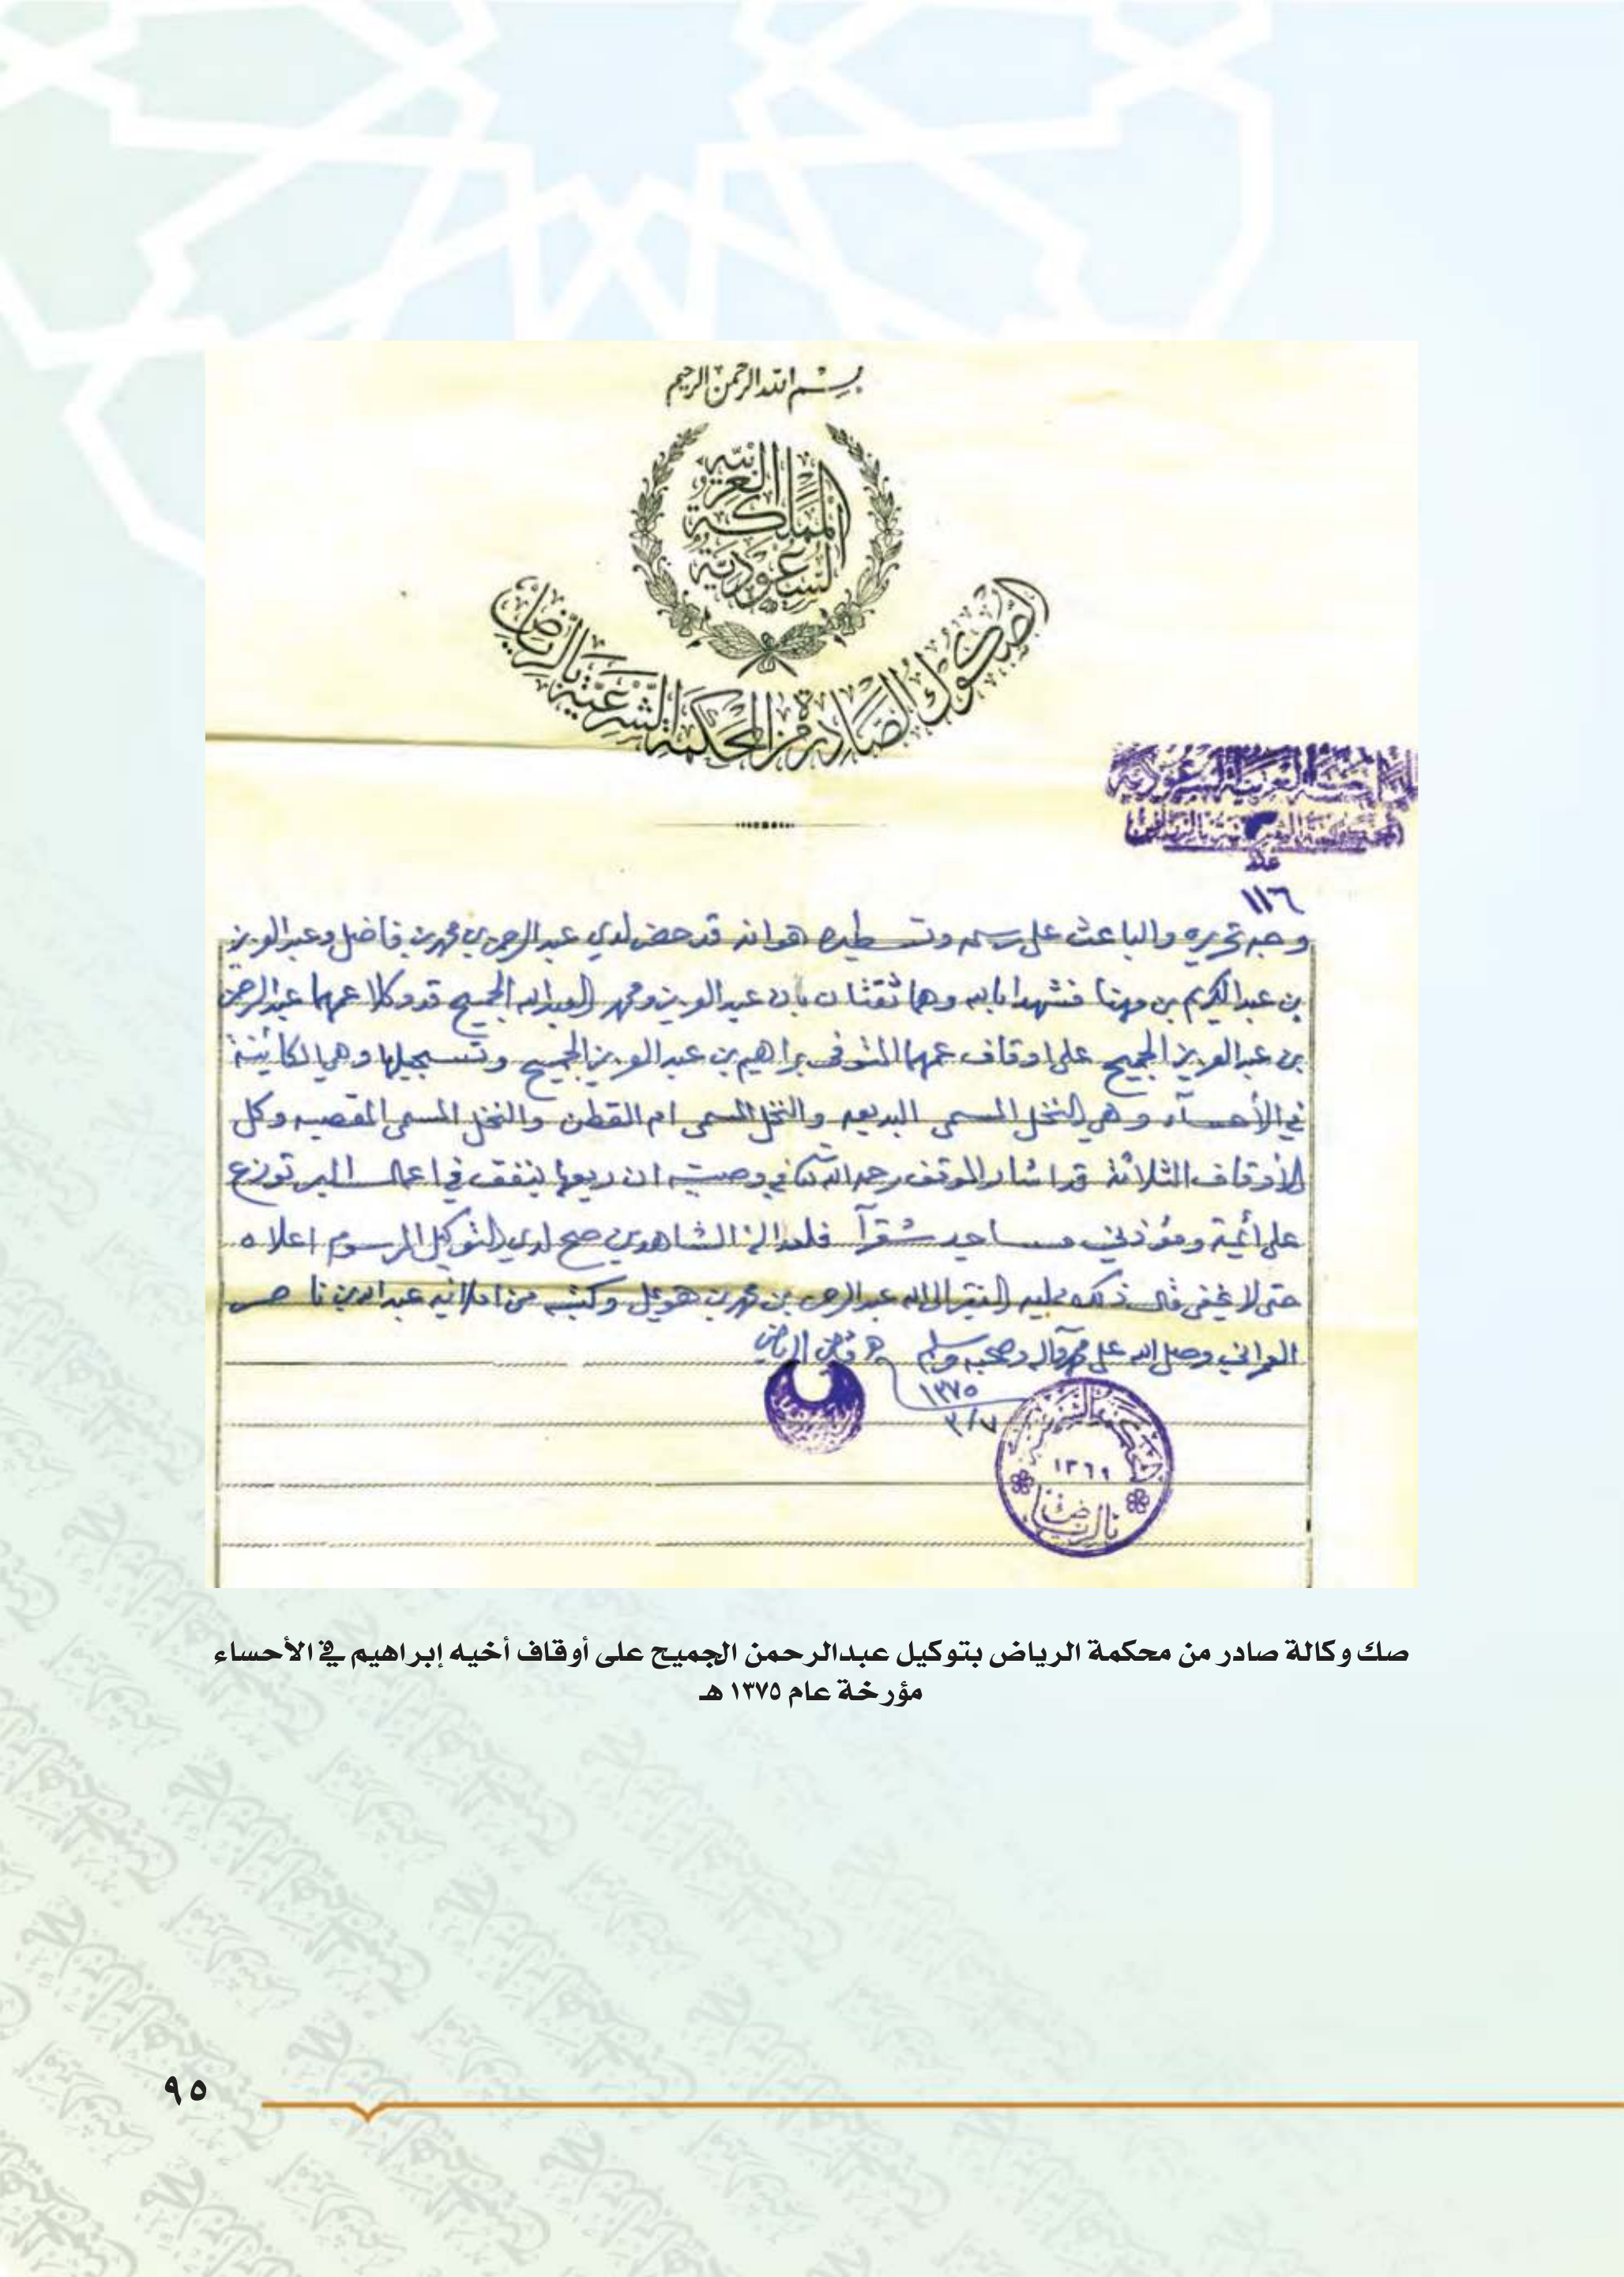 بسم الله الرحمن الرحيم
المملكة العربية السعودية
الصكوك الصادرة من المحكمة الشرعية بالرياض
المملكة العربية السعودية
المحكمة الشرعية بالرياض
عدد
١١٦
وجه تحريره والباعث على رسمه وتسطيره هو انه قد حضر لدي عبد الرحمن بن محمد بن فاضل وعبد العزيز
بن عبد الكريم بن مهنا فشهدا بالله وهما ثقتان بان عبد العزيز ومحمد العبد الله الجميح قد وكلا عمهما عبد الرحمن
بن عبد العزيز الجميح على اوقاف عمهما المتوفى براهيم بن عبد العزيز الجميح وتسجيلها وهي الكائنة
في الأحساء وهي النخل المسمى البديعه والنخل المسمى ام القطن والنخل المسمى القصيبه وكل
الأوقاف الثلاثة قد اشار الموقف رحمه الله في وصيته ان ريعها ينفق في اعمال البر توزع
على أئمة ومؤذني مساجد شقرآ فلعدالة الشاهدين صح لدي التوكيل المرسوم اعلاه
حتى لا يخفى قال ذلك ممليه الفقير الى الله عبد الرحمن بن محمد بن هويمل وكتبه من املائه عبد الله بن ناصر
وصلى الله على محمد وآله وصحبه وسلم قاضي الرياض
١٣٧٥
٣/٧
المحكمة الشرعية
١٣٦٩
بالرياض
صك وكالة صادر من محكمة الرياض بتوكيل عبدالرحمن الجميح على أوقاف أخيه إبراهيم في الأحساء
مؤرخة عام ١٣٧٥ هـ
٩٥